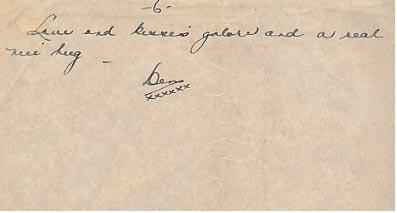 -6-
Love and kisses galore and a real
nice hug -
Den
xxxxxx